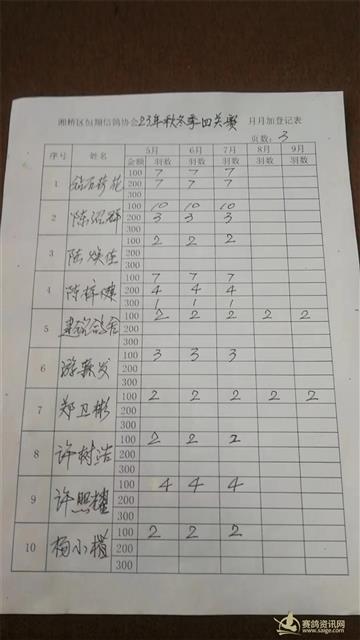 湘桥区恒翔信鸽协会23年秋冬季四关赛 月月加登记表
页数：3
序号 姓名 5月 6月 7月 8月 9月
金额 羽数 羽数 羽数 羽数 羽数
1 钻石荷花 100 7 7 7
200 7 7 7
300
2 陈沼群 100 10 10 10
200 3 3 3
300
3 陆焕佳 100 2 2 2
200
300
4 陈梓健 100 7 7 7
200 4 4 4
300 1 1 1
5 鸽舍 100 2 2 2 2 2
200
300
6 游新发 100 3 3 3
200
300
7 郑卫彬 100 2 2 2 2 2
200
300
8 许树浩 100 2 2 2
200
300
9 许照耀 100 4 4 4
200
300
10 杨小楷 100 2 2 2
200
300
赛鸽资讯网
www.saige.com